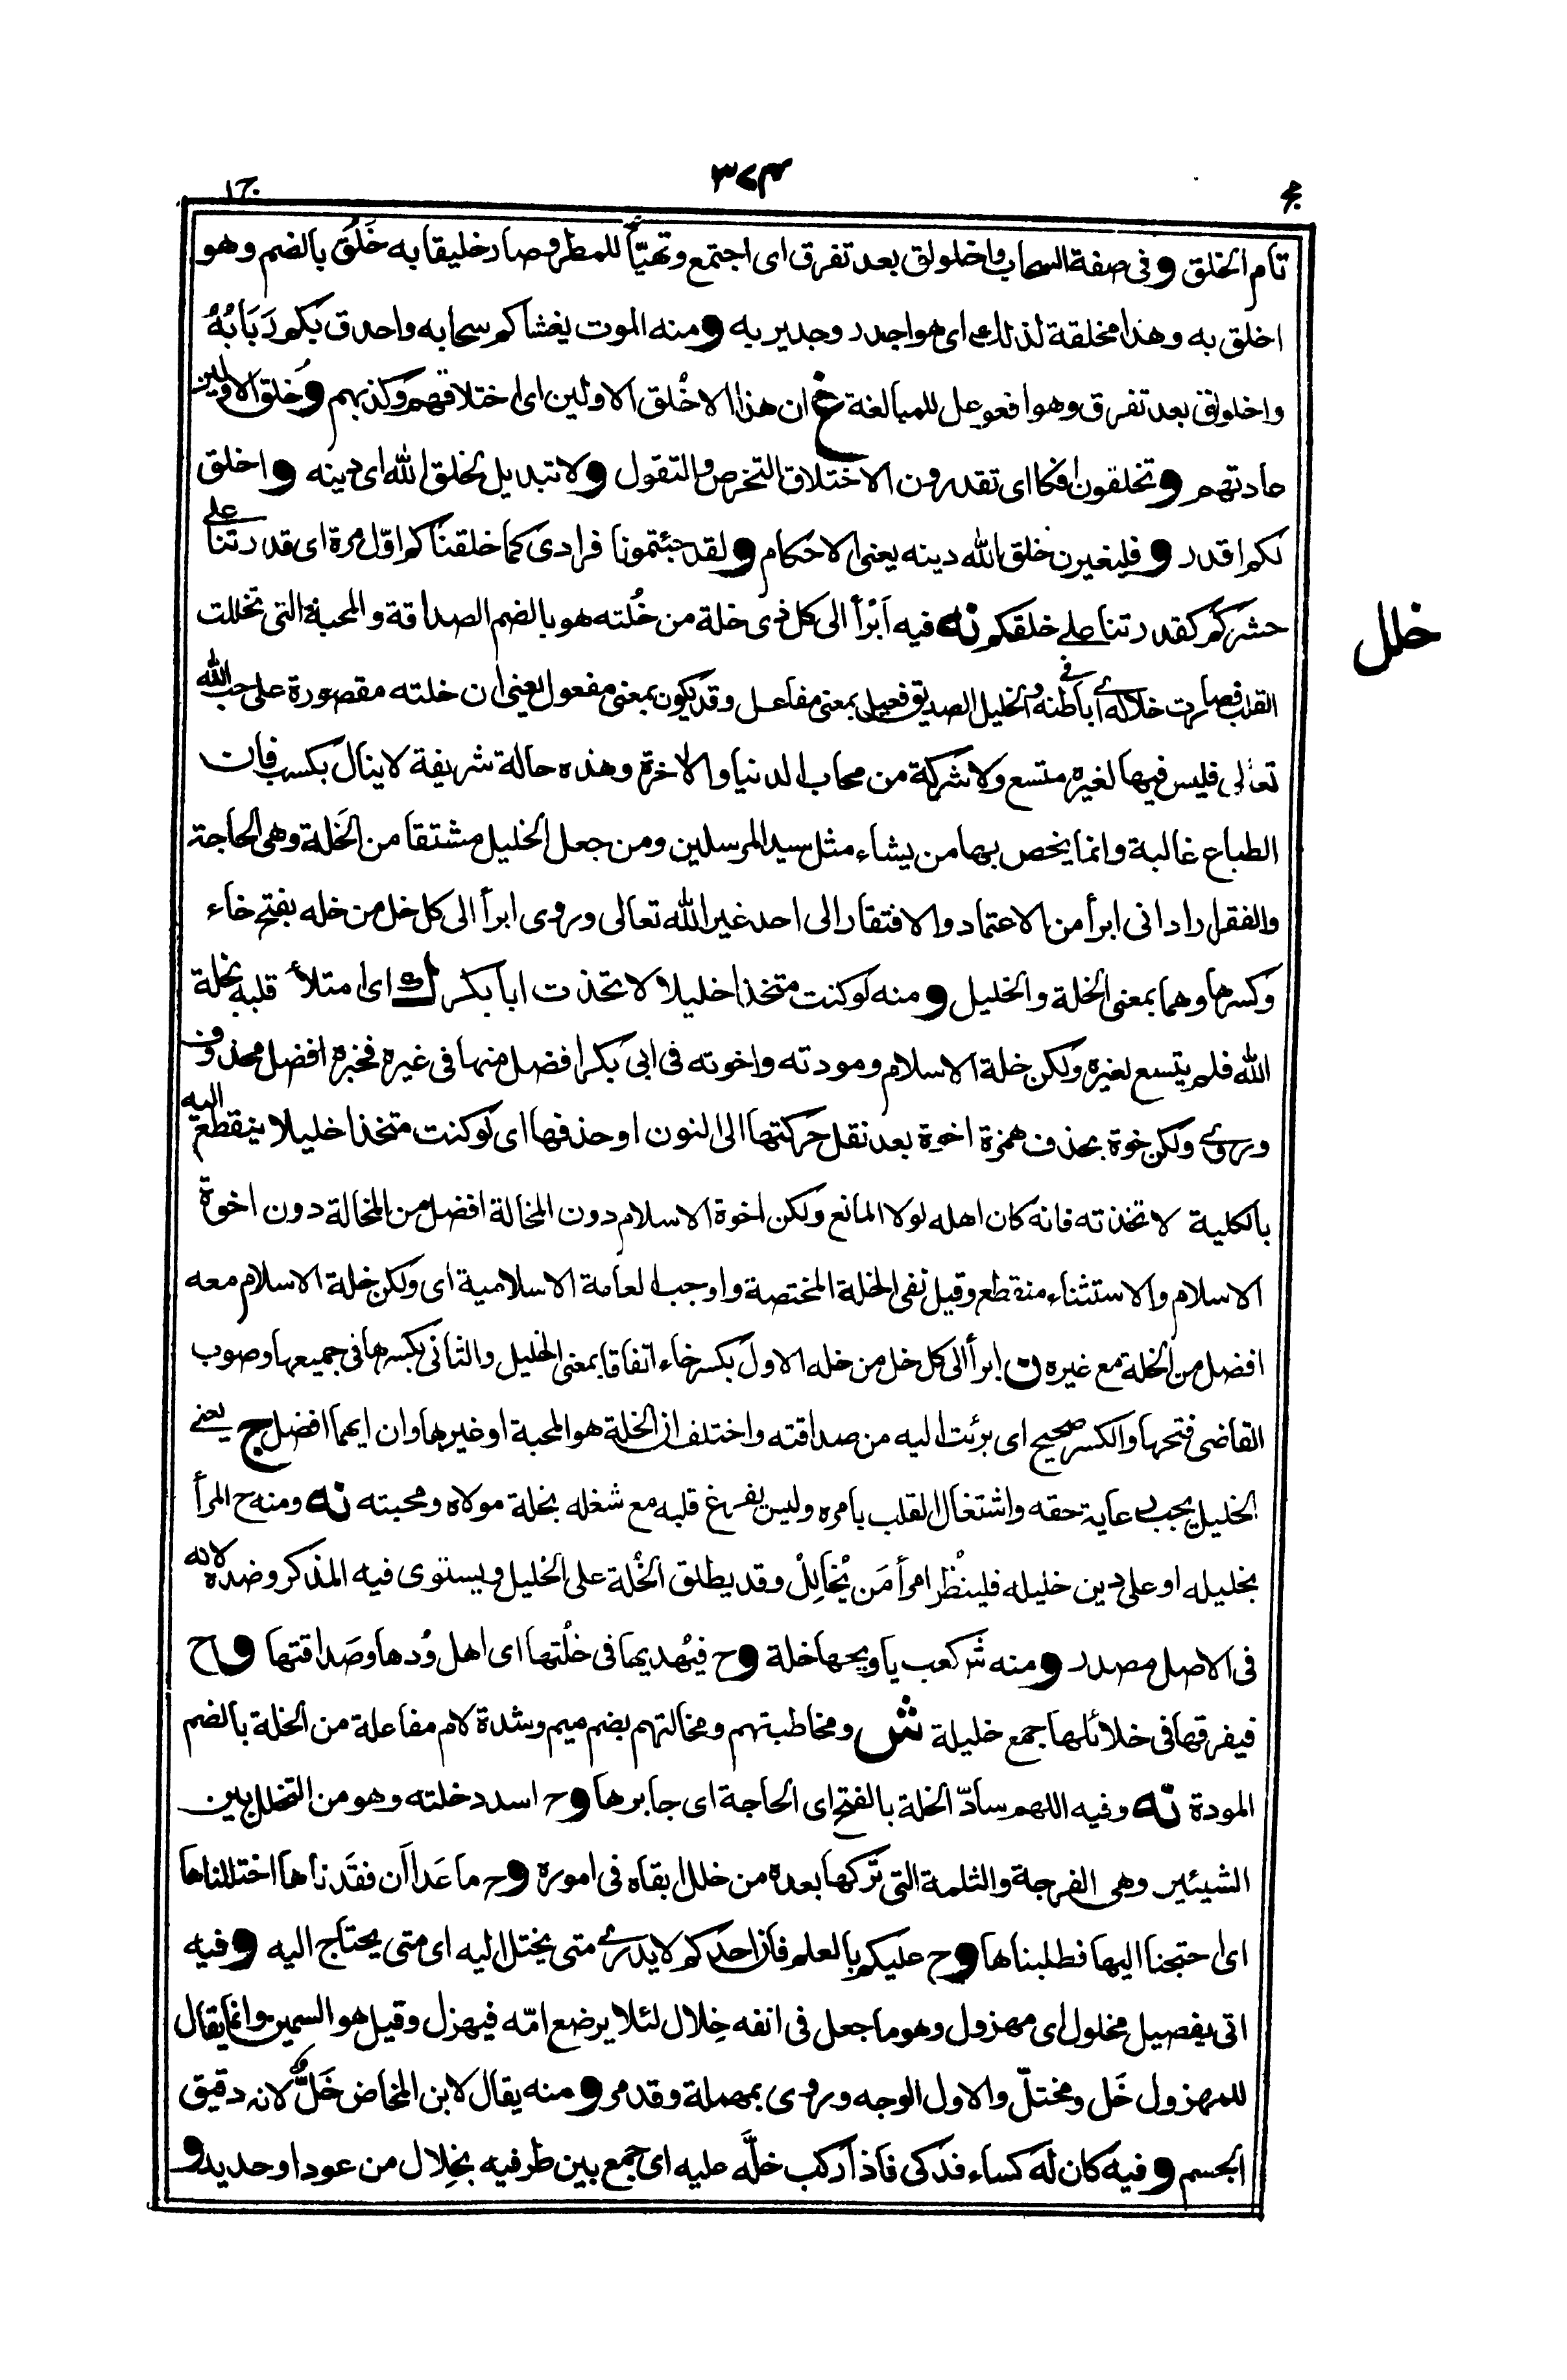 مج
٣٧٤
ج١
تام الخلق و فى صفة السحاب واخلولق بعد تفرق اى اجتمع وتهيّأ للمطر وصار خليقا به خَلُق بالضم وهو
اخلق به وهذا مخلقة لذلك اى هو اجدر وجدير به و منه الموت يغشاكم سحابه واحدق بكم رَبَابُهُ
واخلولق بعد تفرق وهو افعوعل للمبالغة غ ان هذا الا خُلق الاولين اى اختلاقهم وكذبهم و خُلق الاولين
عادتهم و تخلقون افكا اى تقدرون الاختلاق التخرص والتقول و لا تبديل لخلق الله اى دينه و اخلق
لكم اقدر و فليغيرن خلق الله دينه يعنى الاحكام و لقد جئتمونا فرادى كما خلقناكم اوّل مرة اى قدرتنا على
حشركم كقدرتنا على خلقكم نه فيه اَبْرأ الى كل ذى خلة من خُلته هو بالضم الصداقة والمحبة التى تخللت
خلل
القلب فصارت خلاله اى فى باطنه والخليل الصديق فعيل بمعنى مفاعل وقد يكون بمعنى مفعول يعنى ان خلته مقصورة على حب الله
تعالى فليس فيها لغيره متسع ولا شركة من محاب الدنيا والاخرة وهذه حالة شريفة لا ينال بكسب فان
الطباع غالبة وانما يخص بها من يشاء مثل سيد المرسلين ومن جعل الخليل مشتقا من الخَلة وهى الحاجة
والفقر اراد انى ابرأ من الاعتماد والافتقار الى احد غير الله تعالى وروى ابرأ الى كل خل من خله بفتح خاء
وكسرها وهما بمعنى الخلة والخليل و منه لو كنت متخذا خليلا لاتخذت ابا بكر ك اى امتلأ قلبه بخلة
الله فلم يتسع لغيره ولكن خلة الاسلام ومودته واخوته فى ابى بكر افضل منها فى غيره فخبره افضل محذوف
وروى ولكن خوة بحذف همزة اخوة بعد نقل حركتها الى النون او حذفها اى لو كنت متخذا خليلا ينقطع اليه
بالكلية لاتخذته فانه كان اهله لولا المانع ولكن اخوة الاسلام دون المخالة افضل من المخالة دون اخوة
الاسلام والاستثناء منقطع وقيل نفى الخلة المختصة واوجب العامة الاسلامية اى ولكن خلة الاسلام معه
افضل من الخلة مع غيره ن ابرأ الى كل خل من خله الاول بكسر خاء اتفاقا بمعنى الخليل والثانى بكسرها فى جميعها وصوب
القاضى فتحها والكسر صحيح اى برئت اليه من صداقته واختلف ان الخلة هو المحبة او غيرها وان ايهما افضل ج يعنى
الخليل يجب رعاية حقه واشتغال القلب بامره وليس يفرغ قلبه مع شغله بخلة مولاه ومحبته نه ومنه ح المرأ
بخليله او على دين خليله فلينْظر امرأ مَن يُخاِلِلْ وقد يطلق الخُلة على الخليل ويستوى فيه المذكر وضده لانه
فى الاصل مصدر و منه شر كعب يا ويحها خلة و ح فيُهديها فى خُلتها اى اهل وُدها وصَداقتها و ح
فيفرقها فى خلائلها جمع خليلة ش ومخاطبتهم ومخالتهم بضم ميم وشدة لام مفاعلة من الخلة بالضم
المودة نه وفيه اللهم سادّ الخلة بالفتح اى الحاجة اى جابرها و ح اسدد خلته وهو من التخلل بين
الشيئين وهى الفرجة والثلمة التى تَركها بعده من خلل ابقاه فى اموره و ح ما عَدا اَن فقَدناها اختللناها
اى احتجنا اليها فطلبناها و ح عليكم بالعلم فان احدكم لا يدرى متى يختل اليه اى متى يحتاج اليه و فيه
اتى بفصيل مخلول اى مهزول وهو ما جعل فى انفه خِلال لئلا يرضع امّه فيهزل وقيل هو السمين وانما يقال
للمهزول خَل ومختلّ والاول الوجه وروى بمهملة وقد مر و منه يقال لابن المخاض خَلٌّ لانه دقيق
الجسم و فيه كان له كساء فدكى فاذا ركب خلَّه عليه اى جمع بين طرفيه بخِلال من عود او حديد و